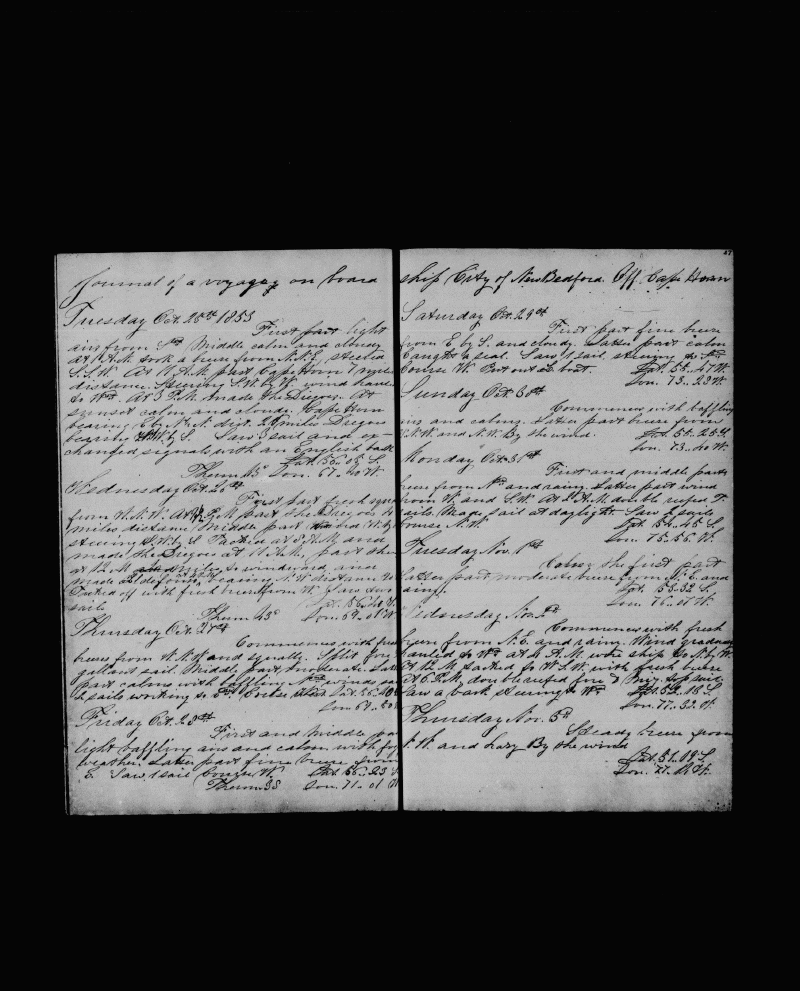 Journal of a voyage on board
Tuesday Oct. 25th 1853
First part light
airs from Sd. Middle calm and cloudy
at 1 A.M. took a breeze from N.N.E. steered
S.S.W. At 11 A.M. past Cape Horn 7 miles
distance. Steering S.W. by W. wind hauled
to Wd. At 3 P.M. made the Diegos. At
sunset calm and cloudy. Cape Horn
bearing N. dist. 25 miles Diegos
bearing W. by S. Saw 1 sail and ex-
changed signals with an English bark
Lat. 56..05 S.
Therm 45° Lon. 67..40 W.
Wednesday Oct. 26th
First part fresh
from W.N.W. At P.M. past the Diegos
miles distance. Middle part W. by
steering S.W. by S. Tacked at 5 A.M. and
made the Diegos at 11 A.M., past them
at 12 M. miles to windward, and
made Ildefonso, bearing N.W. distance
Tacked off with fresh breeze from W. Saw two
sails Lat. 56..40 S.
Therm 43° Lon. 69..01 W.
Thursday Oct. 27th
Commences with fresh
breeze from W.N.W. and squally. Split fore
gallant sail. Middle part, moderate. Latter
part calms with baffling winds saw
2 sails working to Lat. 56..40
Lon 69..20
Friday Oct. 28th
First and middle part
light baffling airs and calm with fog
weather. Latter part fine breeze from
E. Saw 1 sail Course W. Lat. 56..23 S.
Therm 38 Lon. 71..01 W.
57
ship City of New Bedford. Off Cape Horn
Saturday Oct. 29th
First part fine breeze
from E. by S. and cloudy. Latter part calm
Caught a seal. Saw 1 sail steering to Ed.
Course W. Put out a boat. Lat. 55..47 S.
Lon. 73..23 W.
Sunday Oct. 30th
Commences with baffling
airs and calms. Latter part breeze from
W.N.W. and N.W. By the wind. Lat. 55..25 S.
Lon. 73..40 W.
Monday Oct. 31st
First and middle part
breeze from Nd. and rainy. Latter part wind
from W. and S.W. At 1 A.M. double reefed T.
sails. Made sail at daylight. Saw 2 sails
Course N.W. Lat. 54..45 S.
Lon. 75..56 W.
Tuesday Nov. 1st
Calms the first part
Latter part moderate breeze from N.E. and
rainy. Lat. 53..32 S.
Lon. 76..01 W.
Wednesday Nov. 2d
Commences with fresh
breeze from N.E. and rainy. Wind gradually
hauled to Wd. at 4 A.M. wore ship to N. by W.
At 12 M. tacked to W.S.W. with fresh breeze
At 6 P.M. double reefed fore & miz. top sail
Saw a bark steering to Wd. Lat. 52..18 S.
Lon. 77..32 W.
Thursday Nov. 3d
Steady breeze from
N.W. and hazy By the wind
Lat. 51..09 S.
Lon. 77.. W.